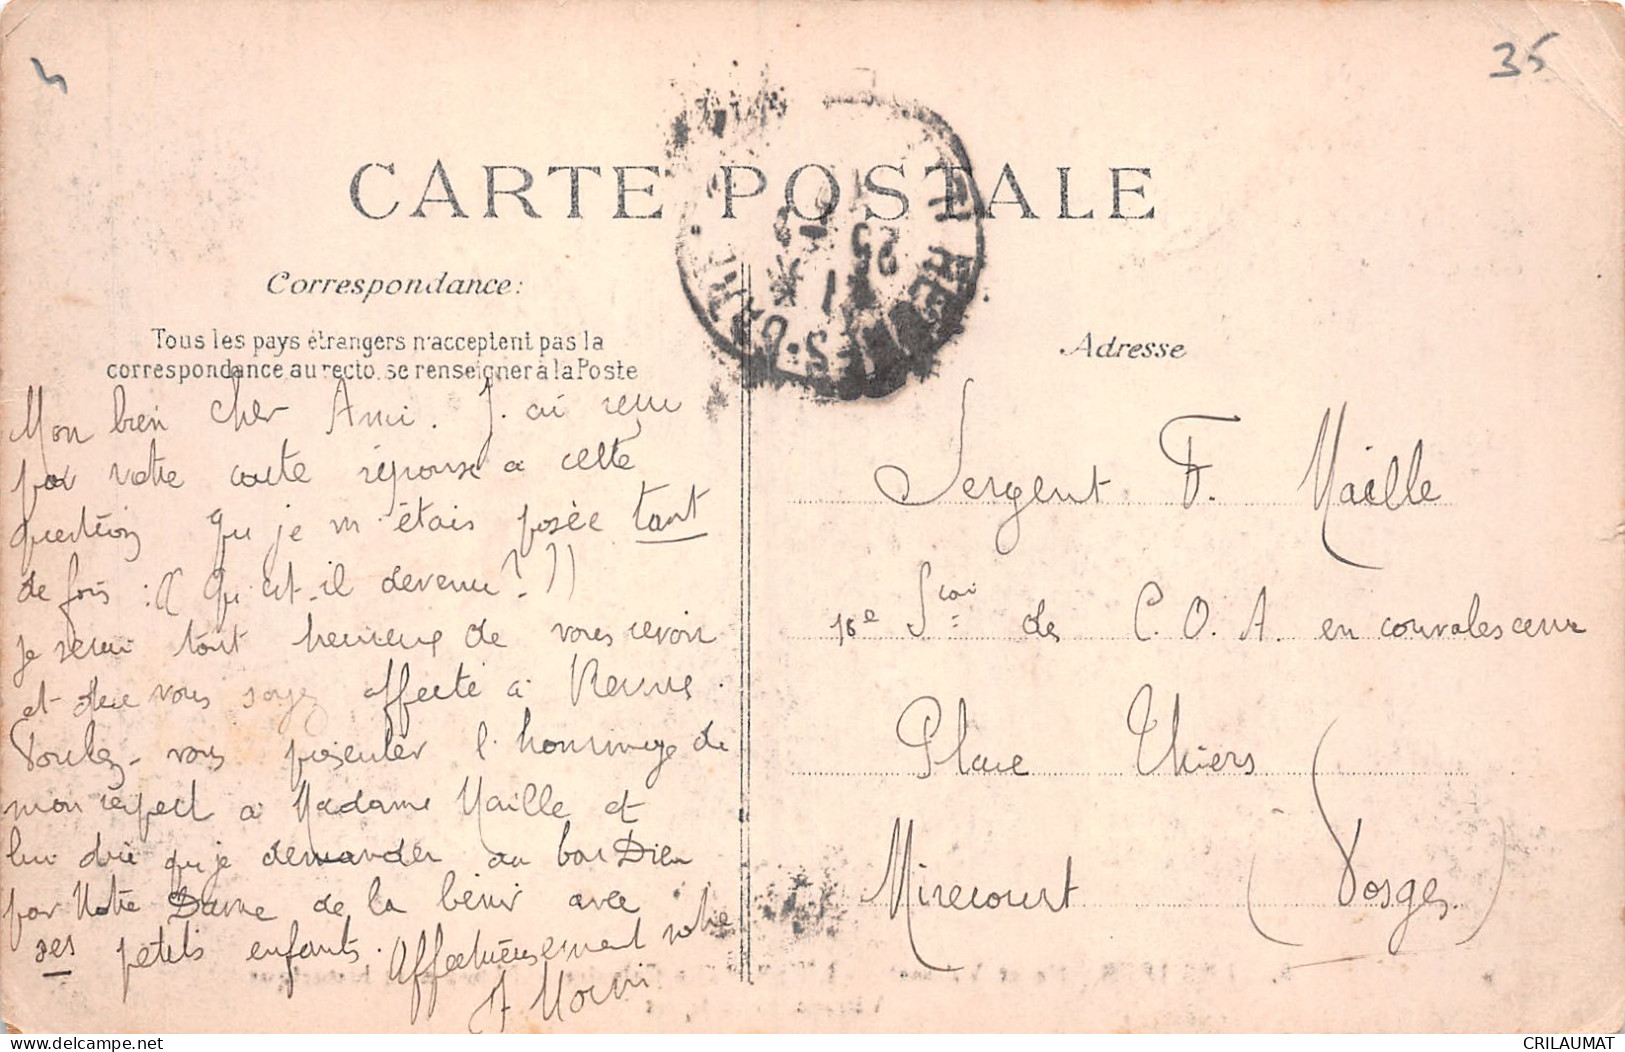 35
CARTE POSTALE
Correspondance:
Tous les pays étrangers n'acceptent pas la
correspondance au recto. se renseigner à la Poste
Mon bien cher Ami. J'ai reçu
par votre carte réponse à cette
question que je m'étais posée tant
de fois : « Qu'est-il devenu ? »
Je serai tout heureux de vous revoir
et que vous soyez affecté à Rennes.
Voulez-vous présenter l'hommage de
mon respect à Madame Maille et
lui dire que je demander au bon Dieu
par Notre Dame de la bénir avec
ses petits enfants. Affectueusement votre
Adresse
Sergent F. Maille
S.on de C. O. A. en convalescence
Place Thiers
Mirecourt (Vosges)
CRILAUMAT